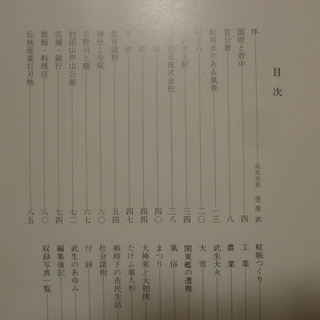 目次
序
武生市長 笠原 武
国府と府中 四
官公署 八
町用水のある風景 一三
二〇
二八
株式会社 三一
三八
四〇
四四
四七
教育諸相 五四
神社と寺院 六〇
日野川と橋 六七
村国山芦山公園 七二
店舗・銀行 七四
旅館・料理店 八〇
伝統産業打刃物 八五
蚊帳つくり
工業
農業
武生大火
大雪
関東艦の遭難
風俗
まつり
大神楽と大相撲
たけふ菊人形
戦時下の市民生活
社会諸相
付録
武生のあゆみ
編集後記
収録写真一覧